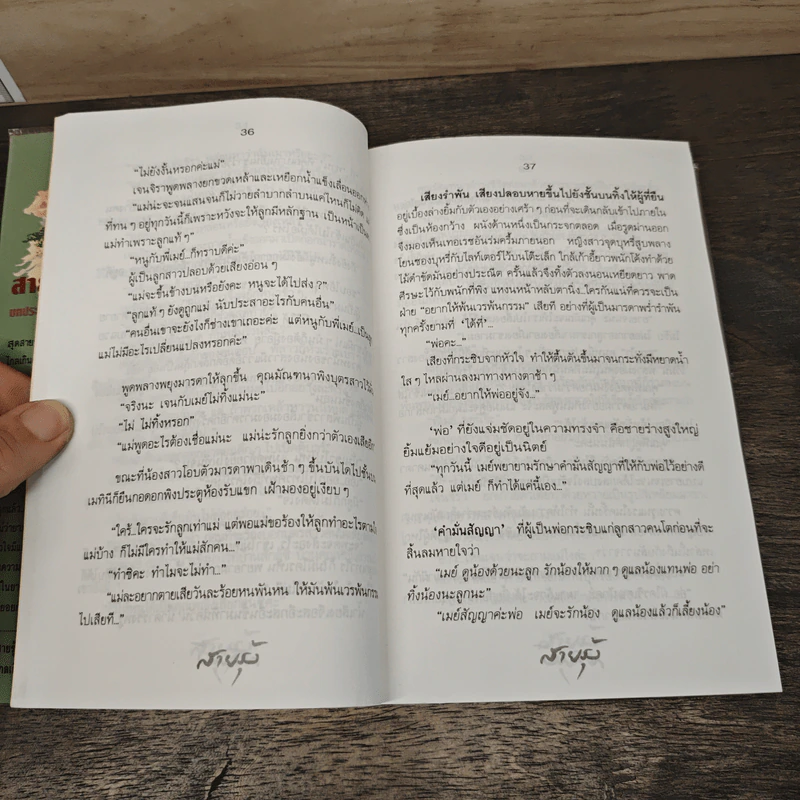 36
“ไม่ยังงั้นหรอกค่ะแม่”
เจนจิราพูดพลางยกขวดเหล้าและเหยือกน้ำแข็งเลื่อนออก
“แม่น่ะจะจนแสนจนก็ไม่ว่า ลำบากลำบนแค่ไหนก็ไม่คิด
ที่ทน ๆ อยู่ทุกวันนี้ก็เพราะหวังจะให้ลูกมีหลักฐาน เป็นหน้าเป็น
แม่ทำเพราะลูกแท้ ๆ”
“หนูกับพี่เมย์..ก็ทราบดีค่ะ”
ผู้เป็นลูกสาวปลอบด้วยเสียงอ่อน ๆ
“แม่จะขึ้นข้างบนหรือยังคะ หนูจะได้ไปส่ง ?”
“ลูกแท้ ๆ ยังดูถูกแม่ นับประสาอะไรกับคนอื่น”
“คนอื่นเขาจะยังไงก็ช่างเขาเถอะค่ะ แต่หนูกับพี่เมย์..เป็น
แม่ไม่มีอะไรเปลี่ยนแปลงหรอกค่ะ”
พูดพลางพยุงมารดาให้ลุกขึ้น คุณมัณฑนาพิงบุตรสาวไว้
“จริงนะ เจนกับเมย์ไม่ทิ้งแม่นะ”
“ไม่ ไม่ทิ้งหรอก”
“แม่พูดอะไรต้องเชื่อแม่นะ แม่น่ะรักลูกยิ่งกว่าตัวเองเสียอีก
ขณะที่น้องสาวโอบตัวมารดาพาเดินช้า ๆ ขึ้นบันไดไปชั้นบน
เมทินีก็ยืนกอดอกพิงประตูห้องรับแขก เฝ้ามองอยู่เงียบ ๆ
“ใคร้..ใครจะรักลูกเท่าแม่ แต่พอแม่ขอร้องให้ลูกทำอะไรตามใจ
แม่บ้าง ก็ไม่มีใครทำให้แม่สักคน..”
“ทำซิคะ ทำไมจะไม่ทำ..”
“แม่ละอยากตายเสียวันละร้อยหนพันหน ให้มันพ้นเวรพ้นกรรม
ไปเสียที..”
สายรุ้ง
37
เสียงรำพัน เสียงปลอบหายขึ้นไปยังชั้นบนทิ้งให้ผู้ที่ยืน
อยู่เบื้องล่างยิ้มกับตัวเองอย่างเศร้า ๆ ก่อนที่จะเดินกลับเข้าไปภายใน
ซึ่งเป็นห้องกว้าง ผนังด้านหนึ่งเป็นกระจกตลอด เมื่อรูดม่านออก
จึงมองเห็นเทอเรซอันร่มครึ้มภายนอก หญิงสาวจุดบุหรี่สูบพลาง
โยนซองบุหรี่กับไลท์เตอร์ไว้บนโต๊ะเล็ก ใกล้เก้าอี้ยาวพนักโค้งทำด้วย
ไม้ดำขัดมันอย่างประณีต ครั้นแล้วจึงทิ้งตัวลงนอนเหยียดยาว พาด
ศีรษะไว้กับพนักที่พิง แหงนหน้าหลับตานิ่ง..ใครกันแน่ที่ควรจะเป็น
ฝ่าย “อยากให้พ้นเวรพ้นกรรม” เสียที อย่างที่ผู้เป็นมารดาพร่ำรำพัน
ทุกครั้งยามที่ ‘ได้ที่’...
“พ่อคะ...”
เสียงที่กระซิบจากหัวใจ ทำให้ตื้นตันขึ้นมาจนกระทั่งมีหยาดน้ำ
ใส ๆ ไหลผ่านลงมาทางหางตาช้า ๆ
“เมย์...อยากให้พ่ออยู่จัง...”
‘พ่อ’ ที่ยังแจ่มชัดอยู่ในความทรงจำ คือชายร่างสูงใหญ่
ยิ้มแย้มอย่างใจดีอยู่เป็นนิตย์
“ทุกวันนี้ เมย์พยายามรักษาคำมั่นสัญญาที่ให้กับพ่อไว้อย่างดี
ที่สุดแล้ว แต่เมย์ ก็ทำได้แค่นี้เอง...”
‘คำมั่นสัญญา’ ที่ผู้เป็นพ่อกระซิบแก่ลูกสาวคนโตก่อนที่จะ
สิ้นลมหายใจว่า
“เมย์ ดูน้องด้วยนะลูก รักน้องให้มาก ๆ ดูแลน้องแทนพ่อ อย่า
ทิ้งน้องนะลูกนะ”
“เมย์สัญญาค่ะพ่อ เมย์จะรักน้อง ดูแลน้องแล้วก็เลี้ยงน้อง”
สายรุ้ง